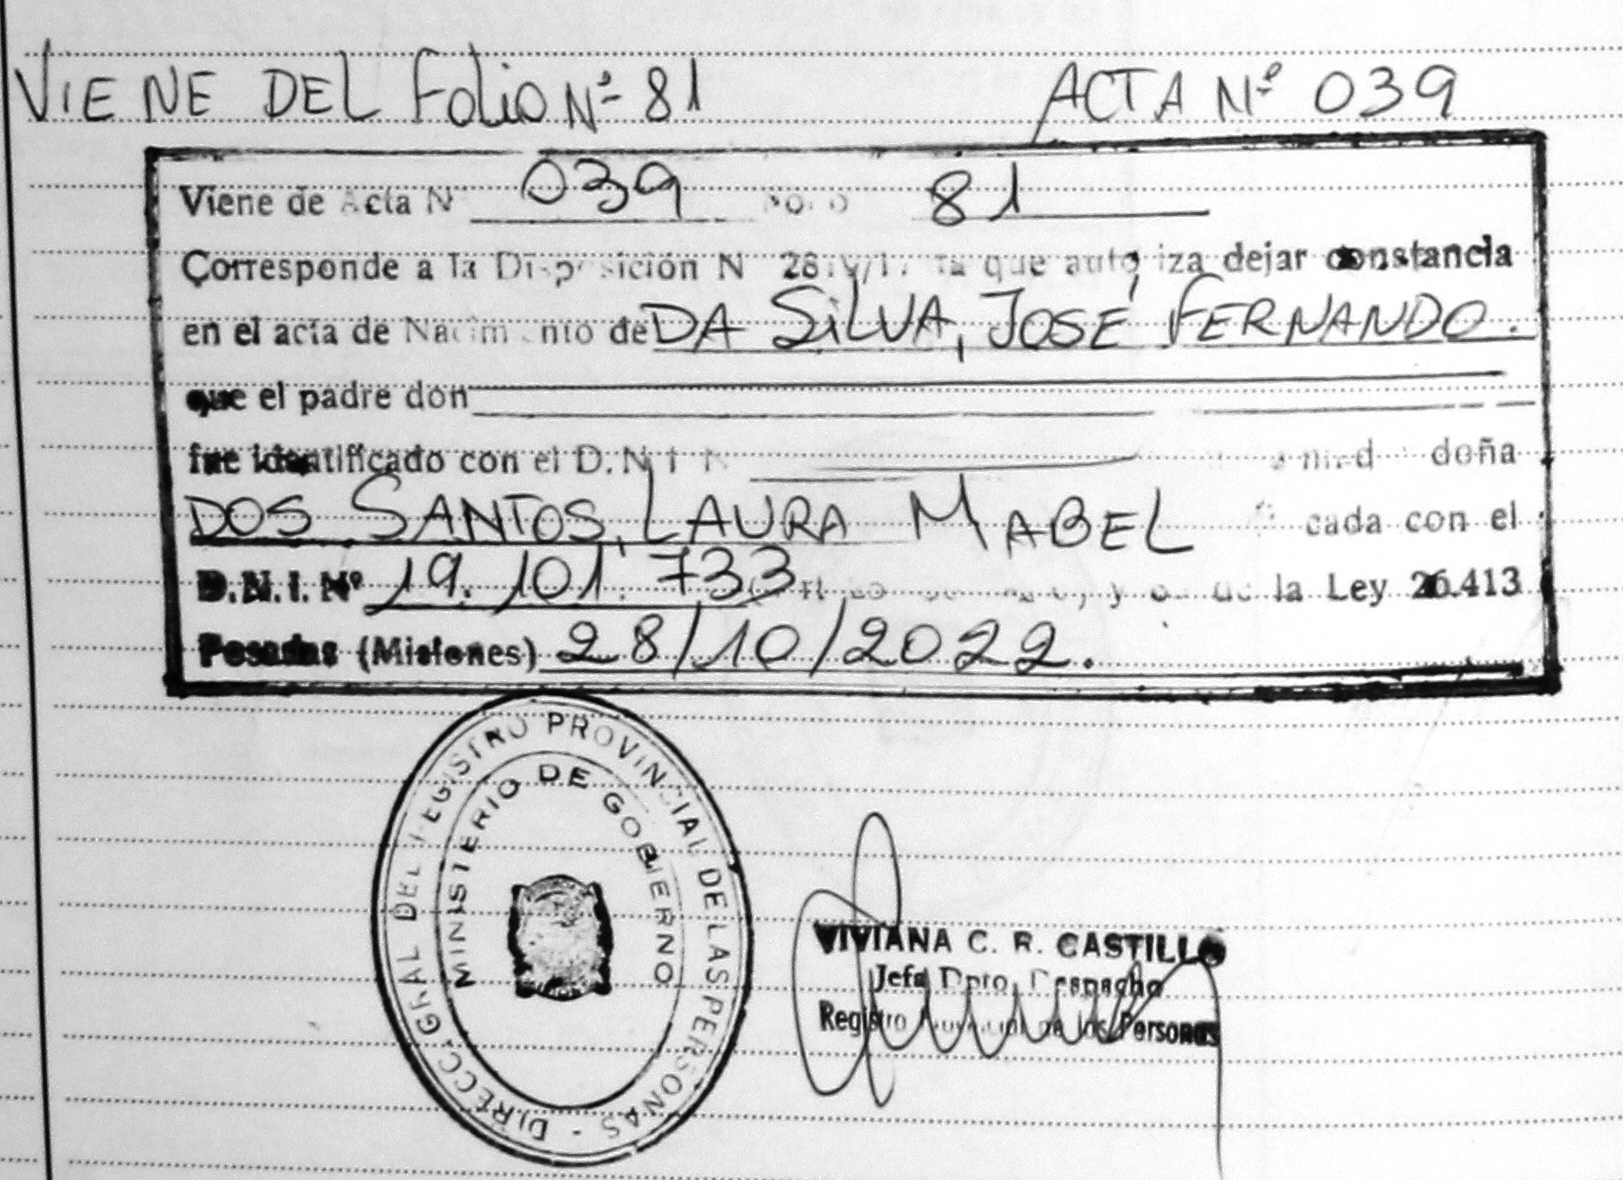 VIENE DEL Folio Nº 81 ACTA Nº 039
Viene de Acta N 039 81
Corresponde a la Disposición N que autoriza dejar constancia
en el acta de Nacimiento de DA SILVA, JOSÉ FERNANDO.
que el padre don
fue identificado con el D.N.I N doña
DOS SANTOS, LAURA MABEL cada con el
D.N.I. Nº 19.101.733 de la Ley 26.413
Posadas (Misiones) 28/10/2022.
DIRECC. GRAL DEL REGISTRO PROVINCIAL DE LAS PERSONAS -
MINISTERIO DE GOBIERNO
VIVIANA C. R. CASTILLO
Jefa Dpto. Despacho
Registro Provincial de las Personas